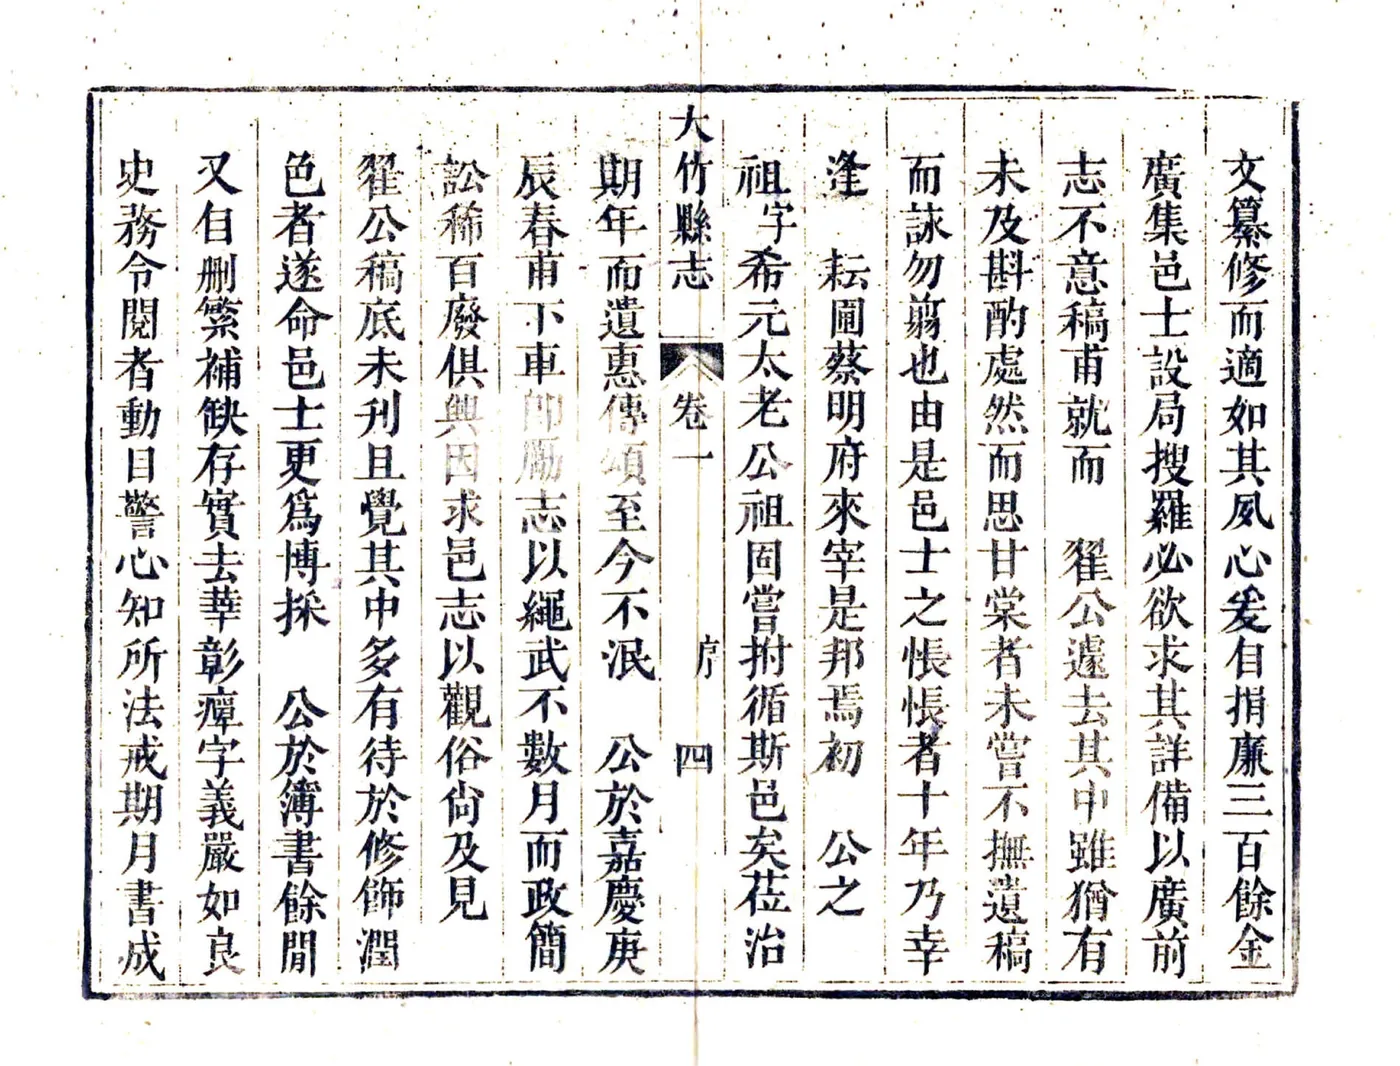 文纂修而適如其夙心爰自捐廉三百餘金
廣集邑士設局搜羅必欲求其詳備以廣前
志不意稿甫就而　翟公遽去其中雖猶有
未及斟酌處然而思甘棠者未嘗不撫遺稿
而詠勿翦也由是邑士之悵悵者十年乃幸
逢　耘圃蔡明府來宰是邦焉初　公之
祖字希元太老公祖固嘗拊循斯邑矣莅治
大竹縣志　卷一　序　四
期年而遺惠傳頌至今不泯　公於嘉慶庚
辰春甫下車即勵志以繩武不數月而政簡
訟稀百廢俱興因求邑志以觀俗尙及見
翟公稿底未刋且覺其中多有待於修飾潤
色者遂命邑士更爲博採　公於簿書餘閒
又自删繁補缺存實去華彰癉字義嚴如良
史務令閱者動目警心知所法戒期月書成